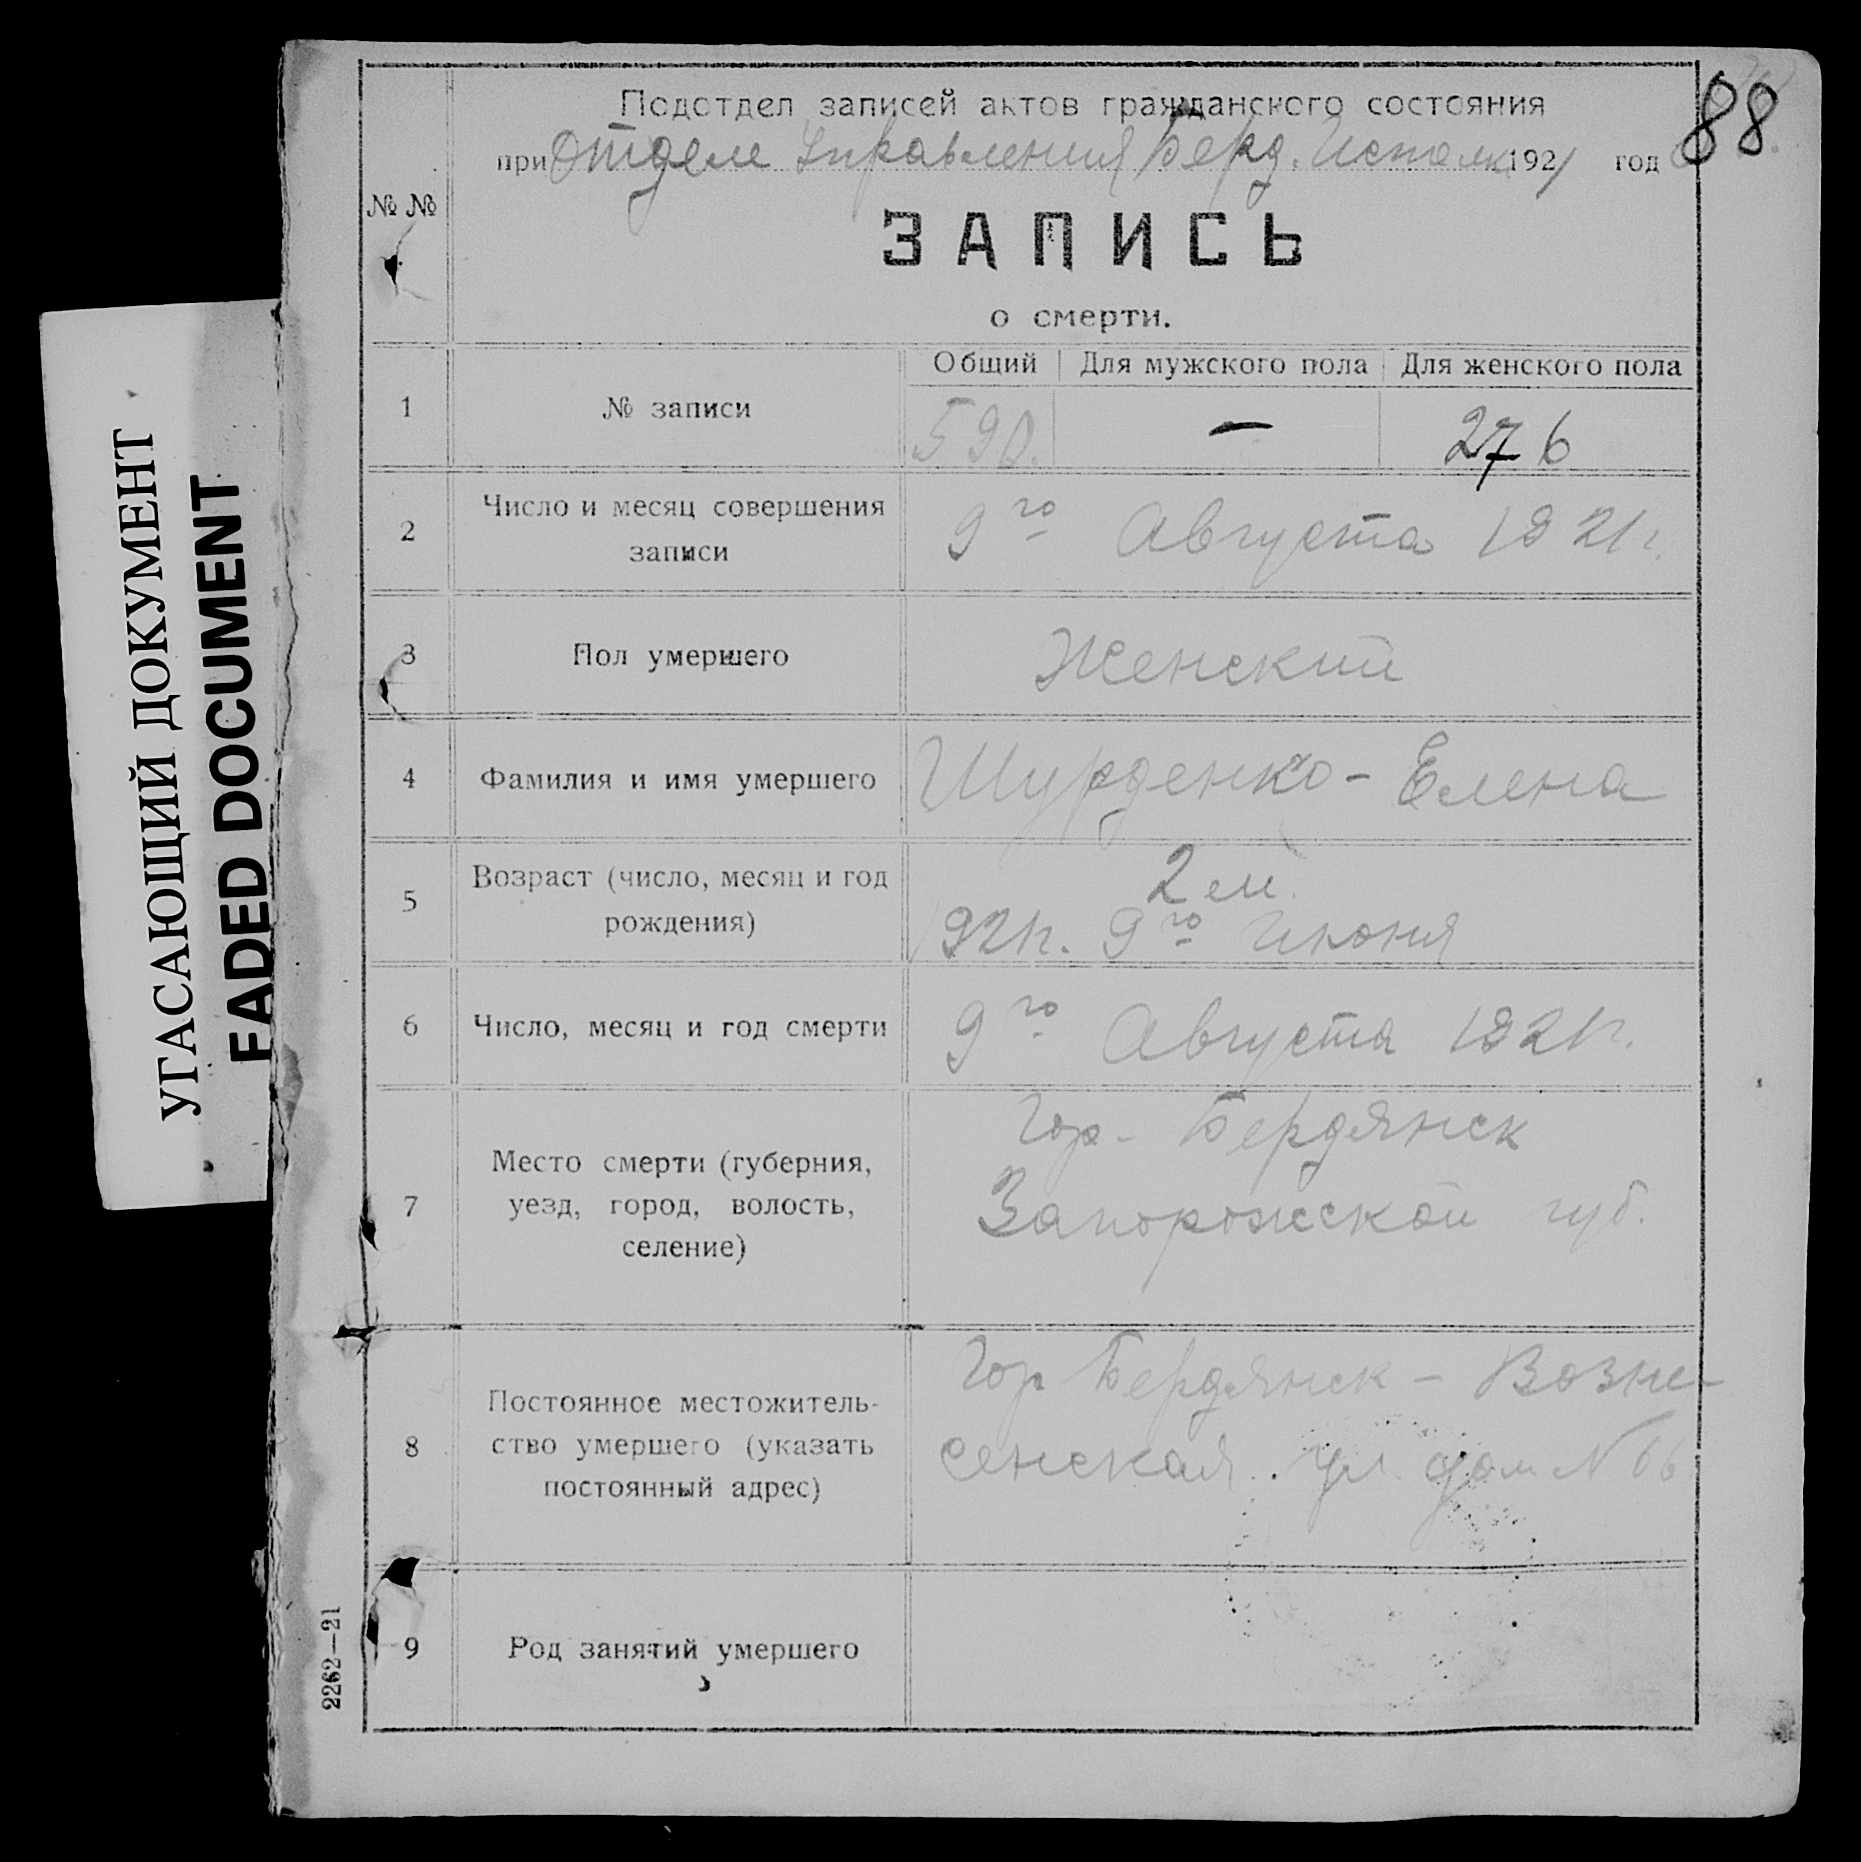 88
Подотдел записей актов гражданского состояния
при Отделе Управления Берд. Исполк. 1921 год
№ №
ЗАПИСЬ
о смерти.
Общий Для мужского пола Для женского пола
1 № записи 590. — 276
2 Число и месяц совершения
записи
9го Августа 1921г.
3 Пол умершего Женский
4 Фамилия и имя умершего Шурденко - Елена
5 Возраст (число, месяц и год
рождения)
2 м.
1921г. 9го Июня
6 Число, месяц и год смерти 9го Августа 1921г.
7 Место смерти (губерния,
уезд, город, волость,
селение)
Гор. Бердянск
Запорожской губ.
8 Постоянное местожитель-
ство умершего (указать
постоянный адрес)
Гор Бердянск - Возне-
сенская ул. дом № 66
9 Род занятий умершего
2262—21
УГАСАЮЩИЙ ДОКУМЕНТ
FADED DOCUMENT